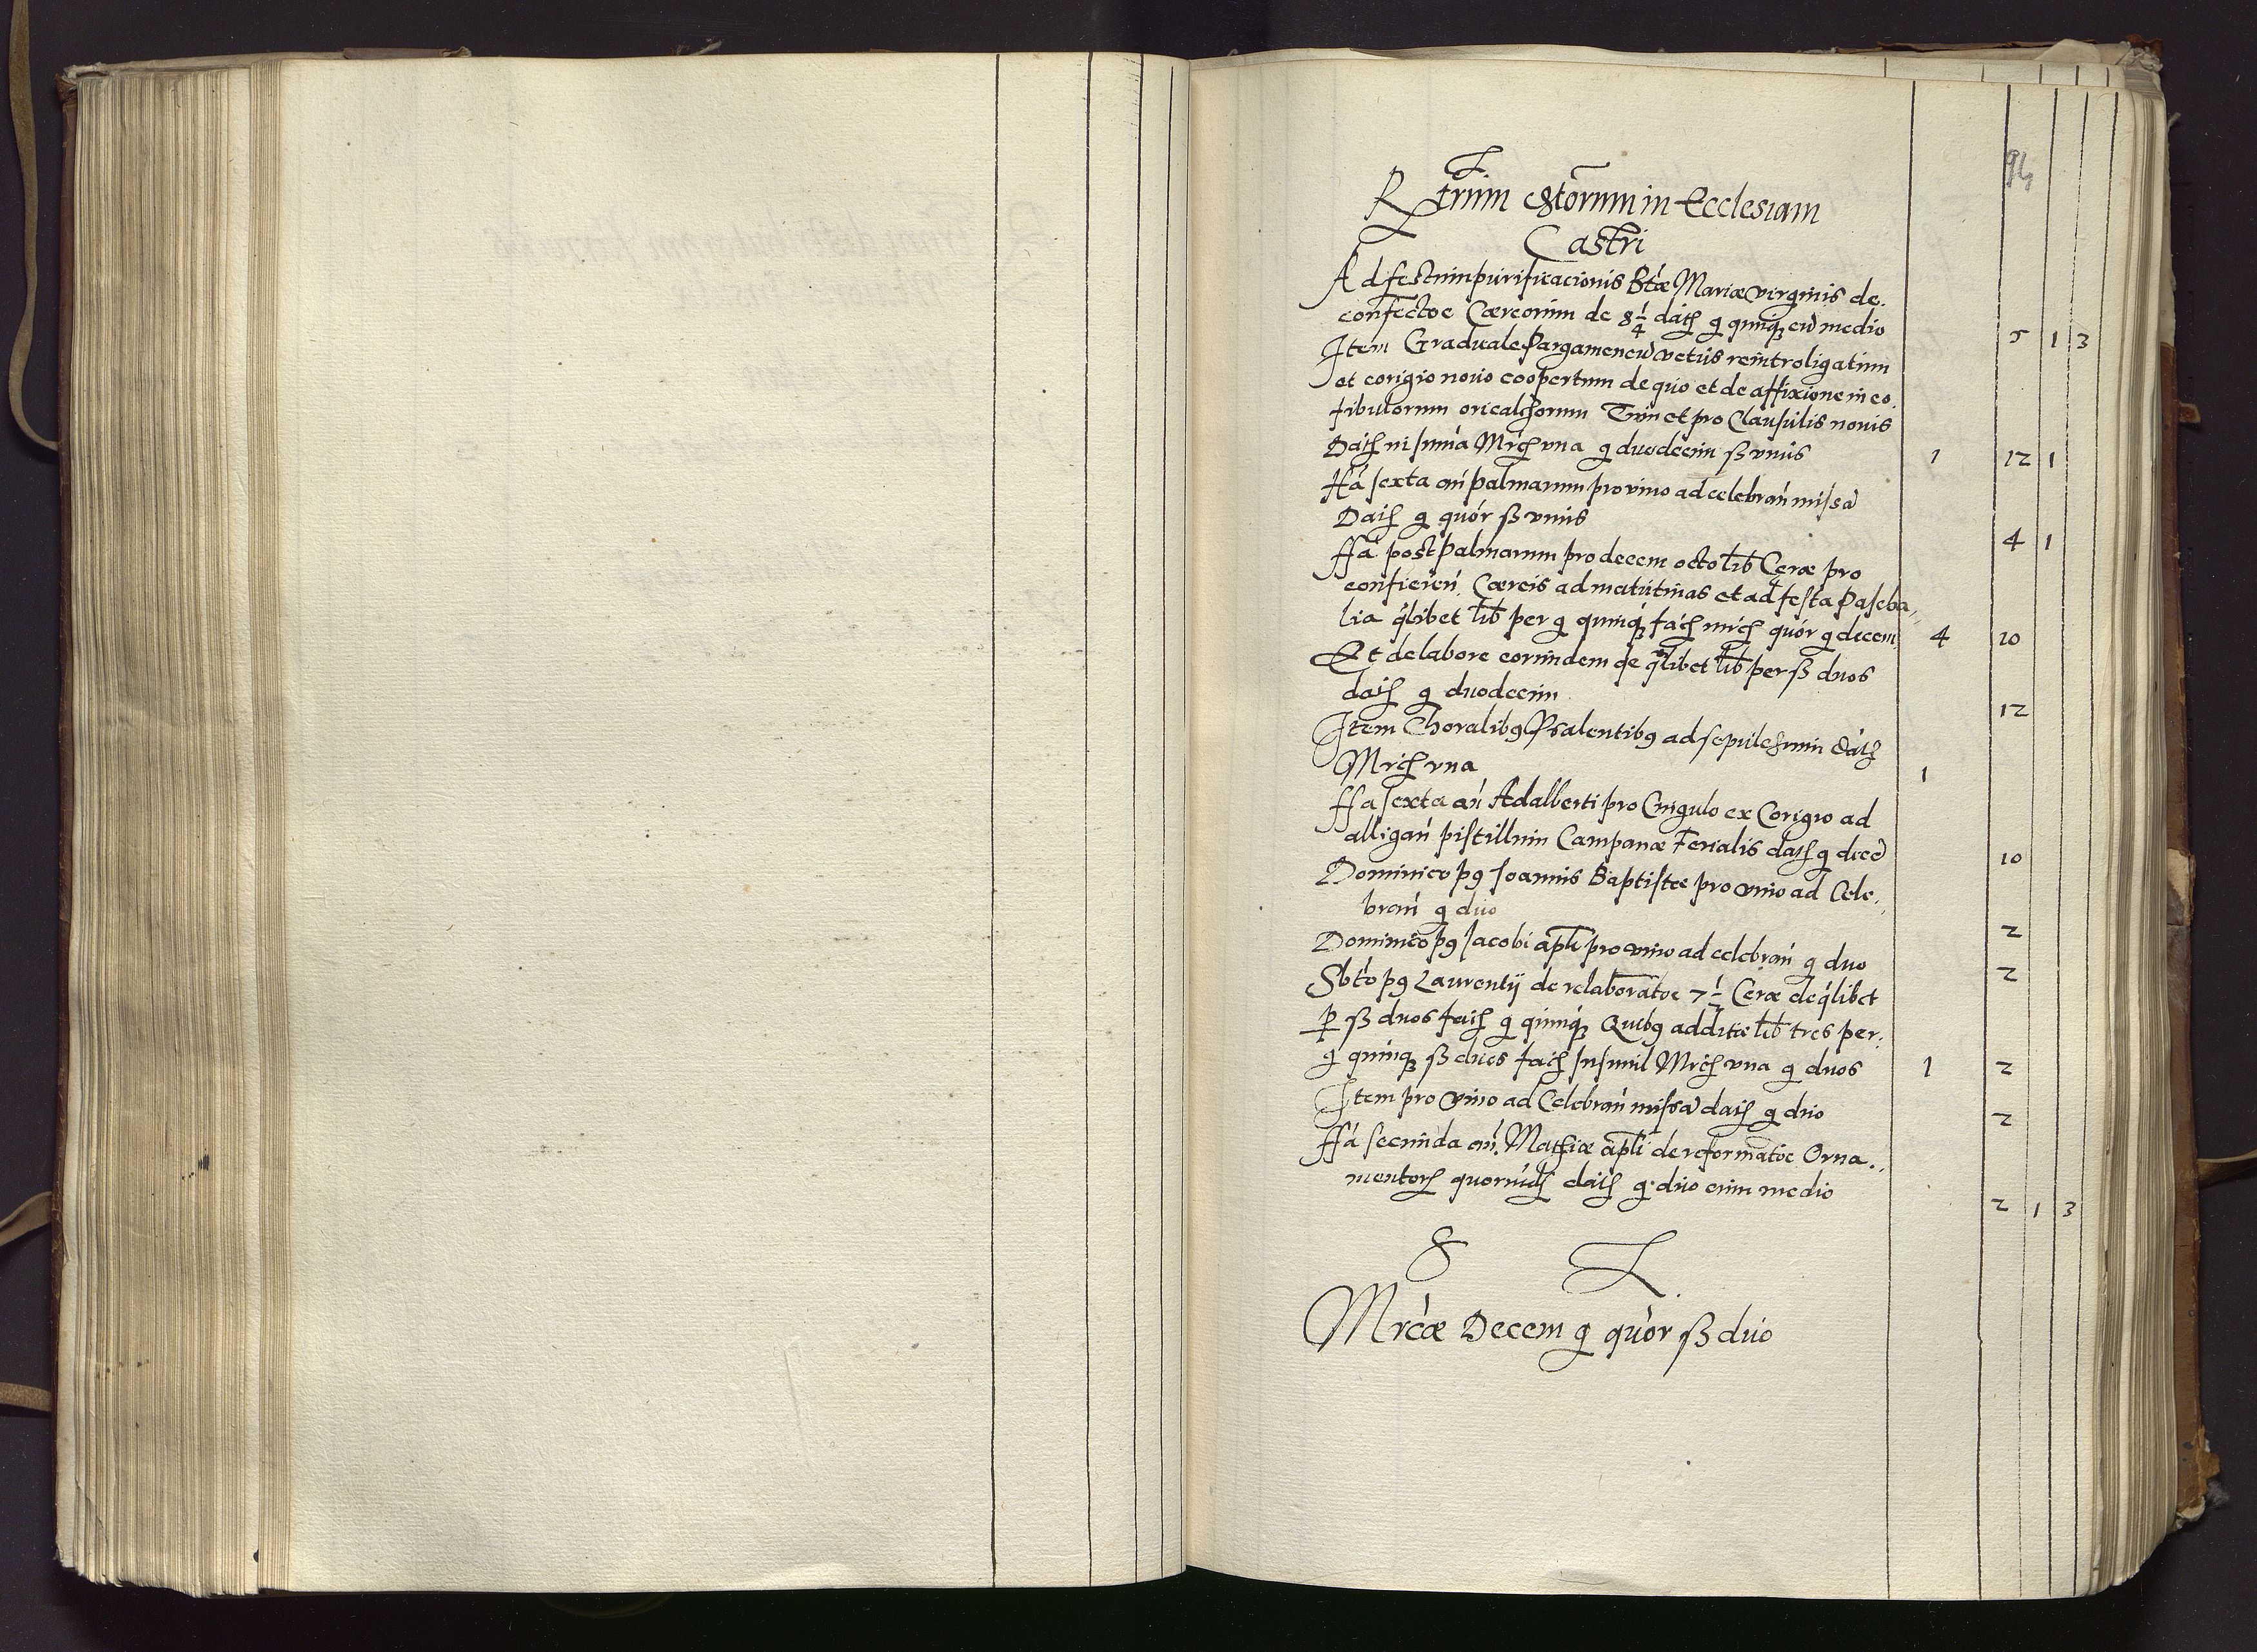 94
Rtrum Exstorum in Ecclesiam
Castri
Ad festum purificacionis Btæ Mariæ virginis de
confectoe Cæreorum de 8 1/4 daty g quinqz cu medio 5 1 3
Item Graduale Pargameneu vetus reintroligatum
et corigio nouo coopertum de quo et de affixione in eo
tibulorum oricalchorum Tum et pro Clausulis nouis
Daty in suma Mrcy vna g duodecim ß vnus 1 12 1
ffa sexta an Palmarum pro vino ad celebran missa
Daty g quor ß vnus 4 1
ffa post Palmarum pro decem octo lib Ceræ pro
conficien Cæreis ad matutinas et ad festa Pascha,,
lia qlibet lib per g quinqz facy mrcy quor g decem 4 10
Et de labore eorundem de qlibet lib per ß duos
daty g duodecim 12
Item Choralibg Psalentibg ad sepulchrum daty
Mrcy vna 1
ffa sexta an Adalberti pro Cingulo ex Corigio ad
alligan pistillum Campanæ Ferialis daty g dece 10
Dominico pg Joannis Baptistæ pro vino ad Cele,,
bran g duo 2
Dominico pg Jacobi apli pro vino ad celebran g duo 2
Sbto pg Laurentij de relaboratoe 7 1/2 Ceræ de qlibet
p ß duos facy g quinqz Quibg additæ lib tres per
g quinqz ß dues facy insimul Mrcy vna g duos 1 2
Item pro vino ad Celebran missa daty g duo 2
ffa secunda an Mathiæ apli de reformatoe Orna,,
mentory quorundy daty g duo cum medio 2 1 3
Mrcæ Decem g quor ß duo